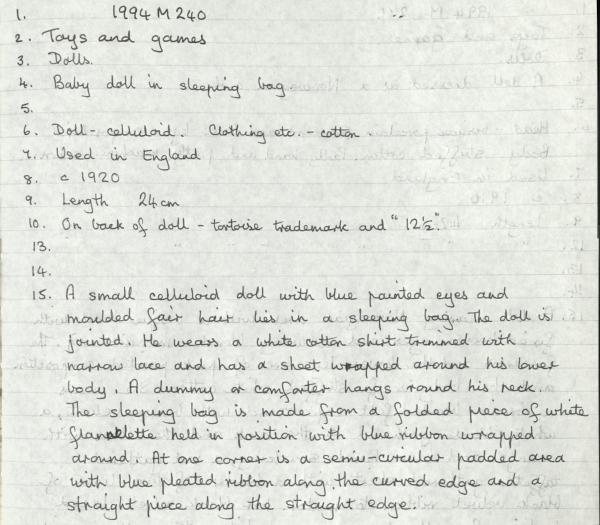 1. 1994 M 240
2. Toys and games
3. Dolls.
4. Baby doll in sleeping bag
5.
6. Doll - celluloid. Clothing etc. - cotton
7. Used in England
8. c 1920
9. Length 24cm
10. On back of doll - tortoise trademark and "12½".
13.
14.
15. A small celluloid doll with blue painted eyes and
moulded fair hair lies in a sleeping bag. The doll is
jointed. He wears a white cotton shirt trimmed with
narrow lace and has a sheet wrapped around his lower
body. A dummy or comforter hangs round his neck.
The sleeping bag is made from a folded piece of white
flannelette held in position with blue ribbon wrapped
around. At one corner is a semi-circular padded area
with blue pleated ribbon along the curved edge and a
straight piece along the straight edge.